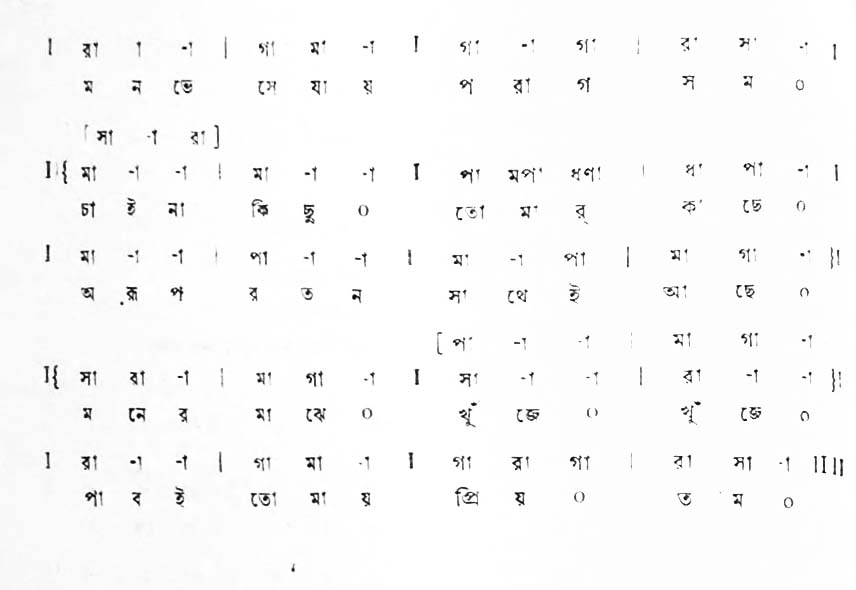 I রা া -া | গা মা -া I গা -া গা | রা সা -া I
ম ন ভে সে যা য় প রা গ স ম ০
[ সা -া রা ]
I { মা -া -া | মা -া -া I পা মপা ধণা | ধা পা -া I
চা ই না কি ছু ০ তো মা র্ কা ছে ০
I মা -া -া | পা -া -া I মা -া পা | মা গা -া } I
অ রূ প র ত ন সা থে ই আ ছে ০
[ পা -া -া | মা গা -া
I { সা রা -া | মা গা -া I সা -া -া | রা -া -া } I
ম নে র মা ঝে ০ খুঁ জে ০ খুঁ জে ০
I রা -া -া | গা মা -া I গা রা গা | রা সা -া II II
পা ব ই তো মা য় প্রি য় ০ ত ম ০